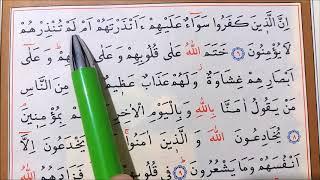 اِنَّ الَّذ۪ينَ كَفَرُوا سَوَٓاءٌ عَلَيْهِمْ ءَاَنْذَرْتَهُمْ اَمْ لَمْ تُنْذِرْهُمْ
لَا يُؤْمِنُونَ ﴿٦﴾ خَتَمَ اللّٰهُ عَلٰى قُلُوبِهِمْ وَعَلٰى وَعَلٰٓى
اَبْصَارِهِمْ غِشَاوَةٌ وَلَهُمْ عَذَابٌ عَظ۪يمٌ مِنَ النَّاسِ
مَنْ يَقُولُ اٰمَنَّا بِاللّٰهِ وَبِالْيَوْمِ الْاٰخِرِ بِمُؤْمِن۪ينَ ﴿٨﴾
يُخَادِعُونَ اللّٰهَ وَالَّذ۪ينَ اٰمَنُوا يَخْدَعُونَ اِلَّٓا
اَنْفُسَهُمْ وَمَا يَشْعُرُونَ ﴿٩﴾ ف۪ي قُلُوبِهِمْ فَزَادَهُمُ